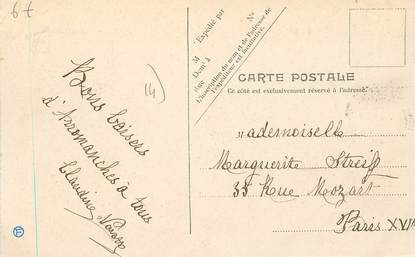 67
14
Bons baisers
d'Arromanches à tous
Claudine
Expédié par
M
Demt à
Rue
N°
L'inscription du nom et de l'adresse de
l'expéditeur est facultative.
CARTE POSTALE
Ce côté est exclusivement réservé à l'adresse.
Mademoiselle
Marguerite Streiff
35 Rue Mozart
Paris XVIe